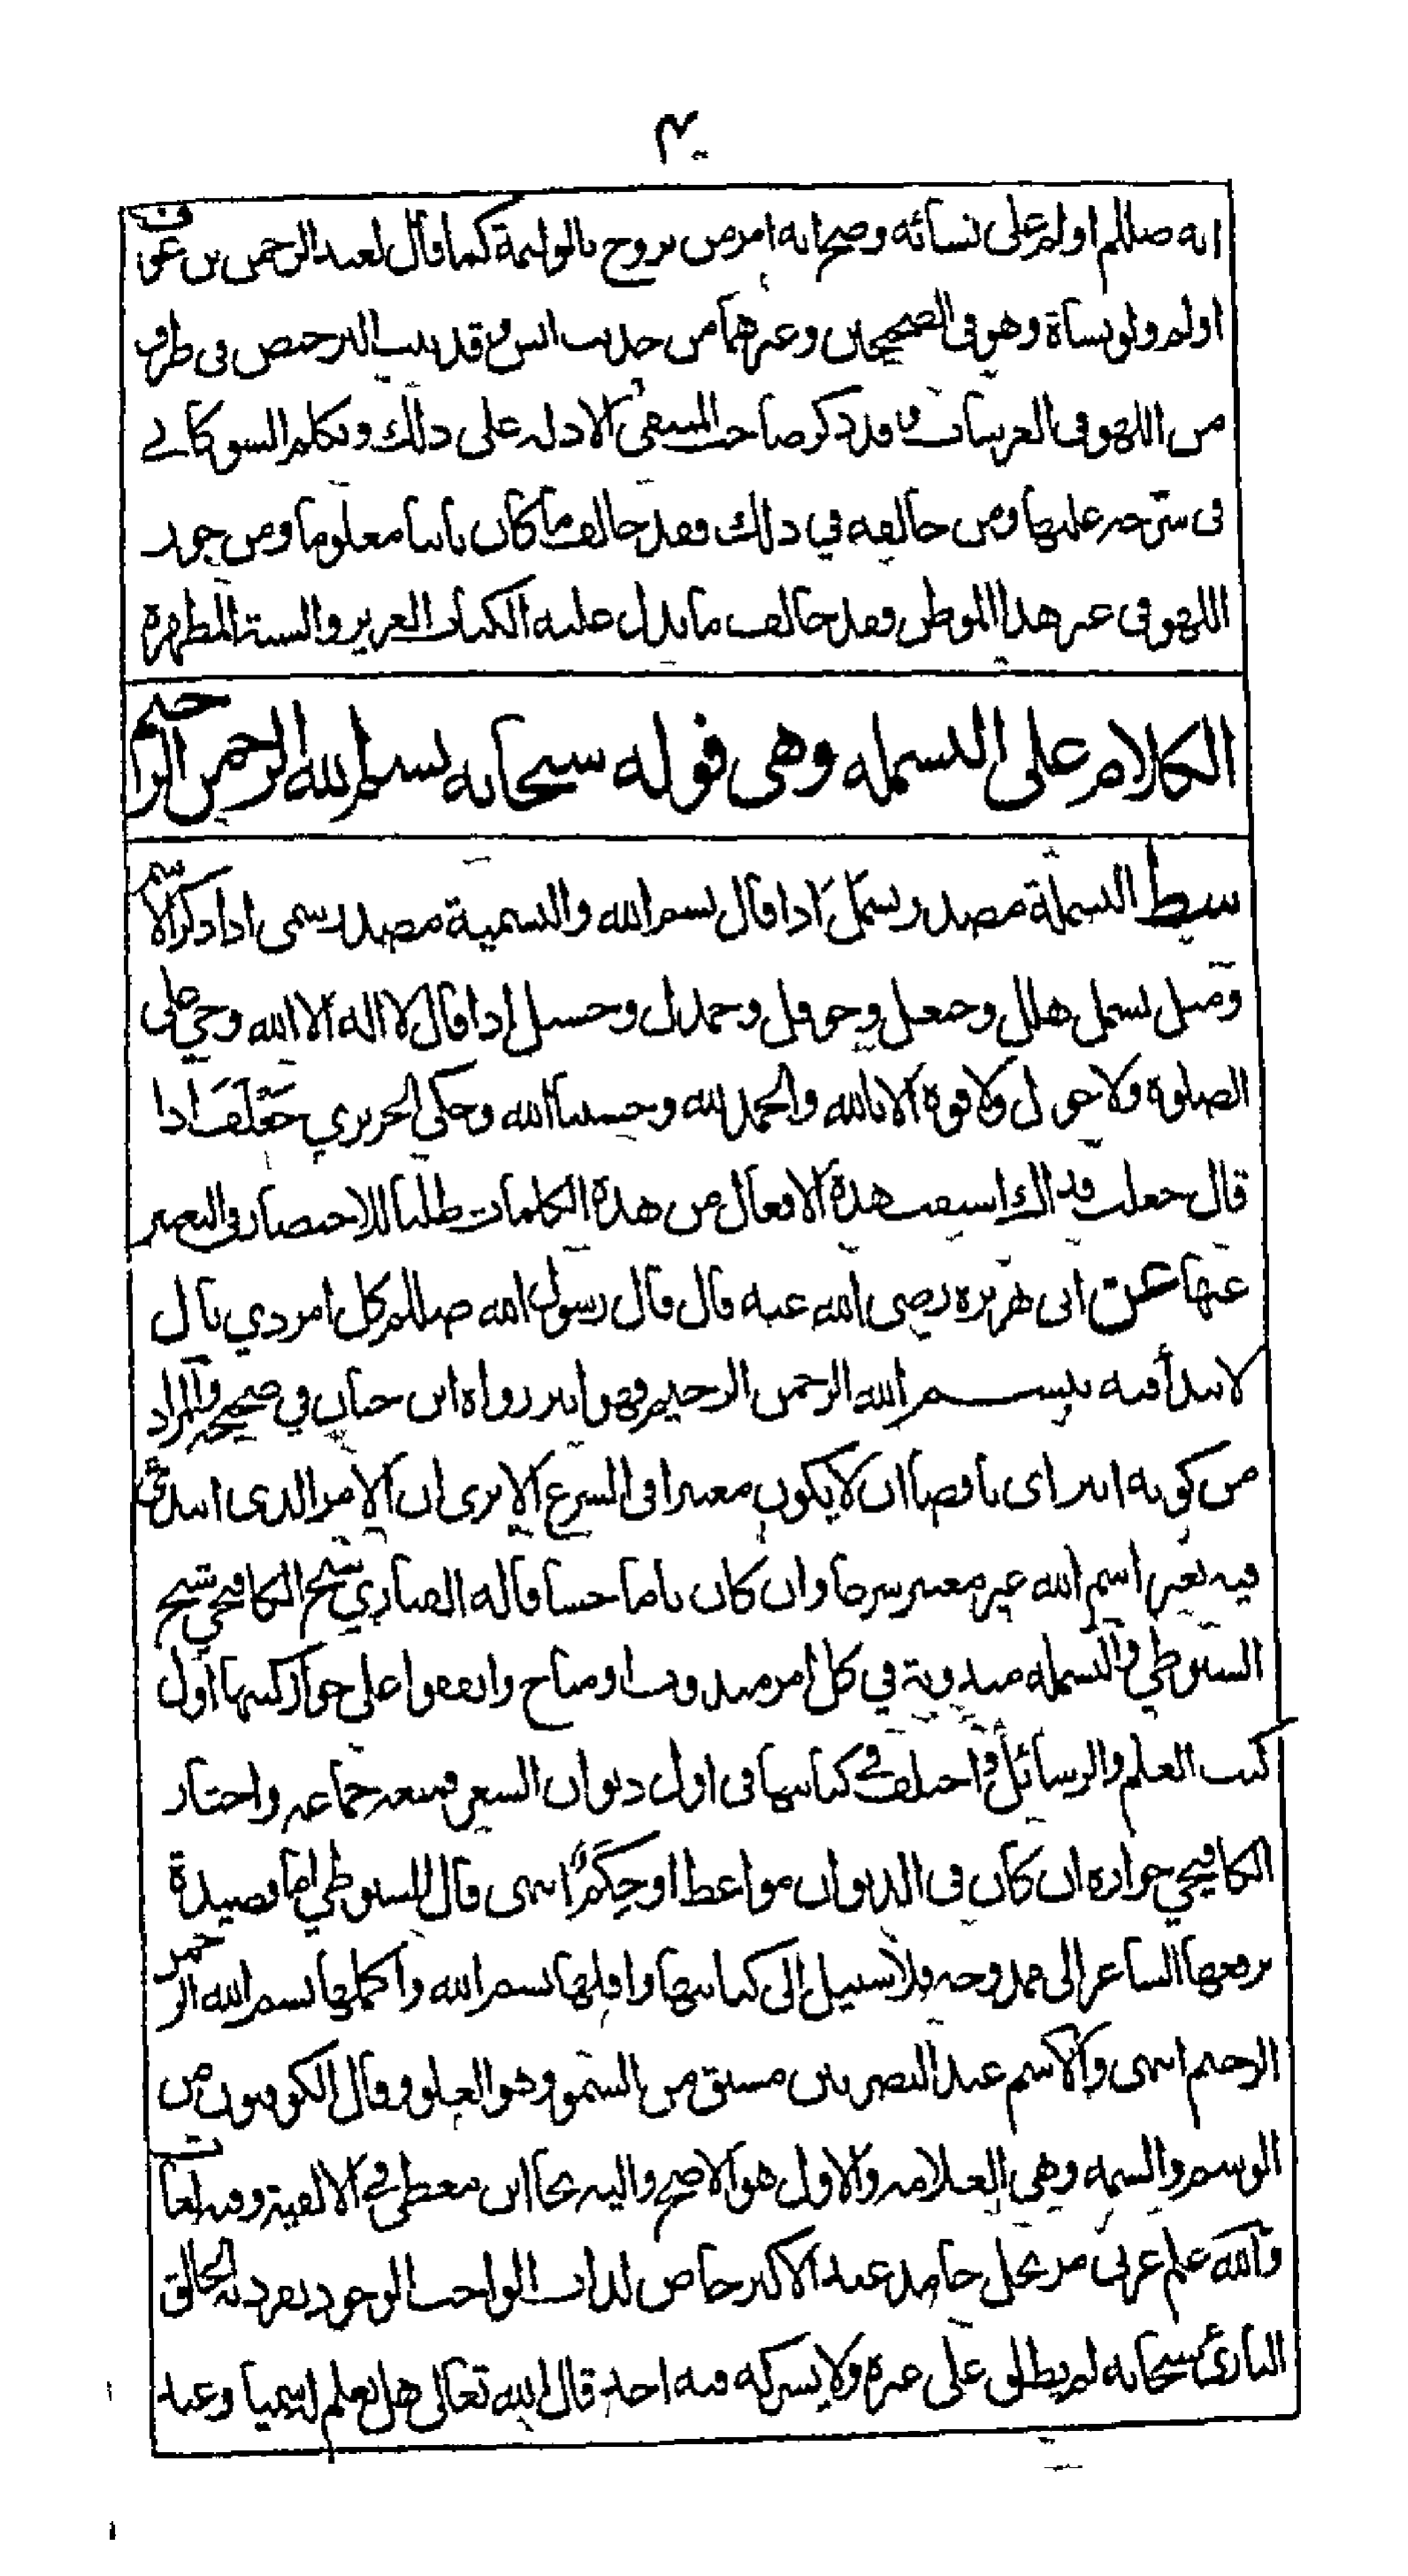 ٣٠
انه صللم اولم على نسائه وصحابه امر من تزوج بالوليمة كما قال لعبد الرحمن بن عوف
اولم ولو بشاة وهو فى الصحيحين وغيرهما من حديث انس وقد ثبت الترخيص فى طرف
من اللهو فى العرسات وقد ذكر صاحب المنتقى الادله على ذلك وتكلم الشوكانے
فى شرحه عليها ومن خالفه في ذلك فقد خالف ما كان ثابتا معلوما ومن جوز
اللهو فى غير هذا الموطن فقد خالف ما يدل عليه الكتاب العزيز والسنة المطهرة
الكلام على البسمله وهى قوله سبحانه بسم الله الرحمن الرحيم
سبط البسملة مصدر بسمل اذا قال بسم الله والتسمية مصدر سمى اذا ذكر الاسم
ومثل بسمل هلل وحيعل وحوقل وحمدل وحسبل إذا قال لا اله الا الله وحي على
الصلوة ولا حول ولا قوة الا بالله والحمد لله وحسبنا الله وحكى الحريري جَعْلَفَ اذا
قال جعلت فداك اشتقت هذه الافعال من هذه الكلمات طلبا للاختصار فى التعبير
عنها عن ابى هريره رضى الله عنه قال قال رسول الله صللم كل امر ذي بال
لا يبدأ فيه ببسم الله الرحمن الرحيم فهو ابتر رواه ابن حبان في صحيحه والمراد
من كونه ابتر اى ناقصا ان لا يكون معتبرا فى الشرع الا ترى ان الامر الذى ابتدئ
فيه بغير اسم الله غير معتبر شرعا وان كان تاما حسا قاله شيخ الكافيجي شيخ
السيوطي والبسمله مندوبة في كل امر مندوب او مباح واتفقوا على جواز كتبها اول
كتب العلم والرسائل واختلف فے كتابتها فى اول ديوان الشعر فمنعه جماعه واختار
الكافيجي جوازه ان كان فى الديوان مواعظ او حِكَم انتهى قال السيوطي اما قصيدة
يرفعها الشاعر الى ممدوحه فلا سبيل إلى كتابتها واقلها بسم الله واكملها بسم الله الرحمن
الرحيم انتهى والاسم عند البصريين مشتق من السمو وهو العلو وقال الكوفيون من
الوسم والسمه وهى العلامه والاول هو الاصح واليه نحا ابن معطى فے الالفية وفيه لغات
والله علم عربى مرتجل جامد عند الاكثر خاص لذات الواجب الوجود تفرد به الخالق
البارئ سبحانه لم يطلق على غيره ولا يشركه فيه احد قال الله تعالى هل تعلم له سميا وعند